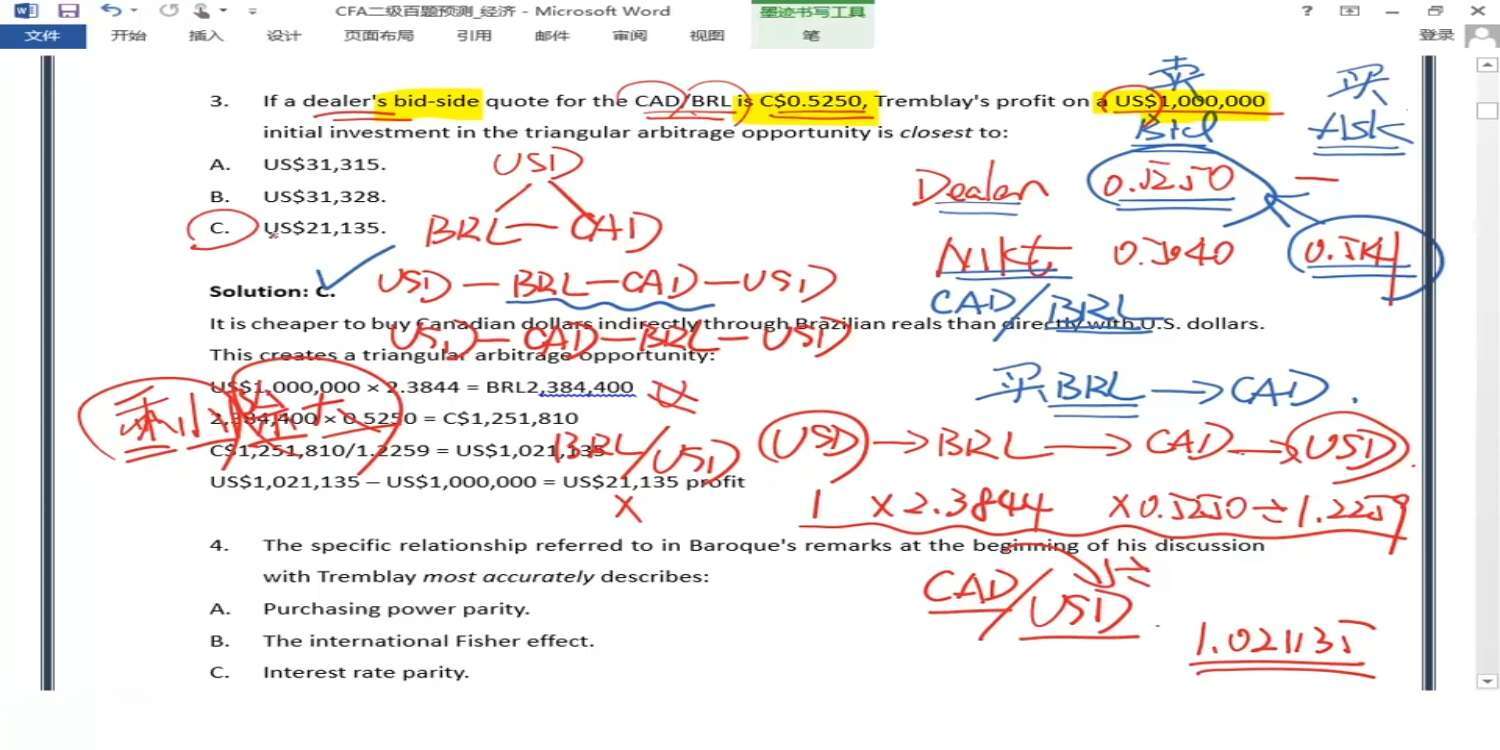 CFA二级百题预测_经济 - Microsoft Word
墨迹书写工具
文件 开始 插入 设计 页面布局 引用 邮件 审阅 视图 笔 登录
卖 买
3. If a dealer's bid-side quote for the CAD/BRL is C$0.5250, Tremblay's profit on a US$1,000,000
initial investment in the triangular arbitrage opportunity is closest to:
Bid Ask
A. US$31,315.
USD
B. US$31,328.
Dealer 0.5250 —
C. US$21,135.
BRL — CAD
NIKT 0.5040 0.5141
USD — BRL — CAD — USD
Solution: C.
CAD/BRL
It is cheaper to buy Canadian dollars indirectly through Brazilian reals than directly with U.S. dollars.
USD — CAD — BRL — USD
This creates a triangular arbitrage opportunity:
US$1,000,000 × 2.3844 = BRL2,384,400
买BRL → CAD.
乘小除大
2,384,400 × 0.5250 = C$1,251,810
BRL/USD
USD → BRL → CAD → USD
C$1,251,810/1.2259 = US$1,021,135
US$1,021,135 – US$1,000,000 = US$21,135 profit
×
1 × 2.3844 × 0.5250 ÷ 1.2259
4. The specific relationship referred to in Baroque's remarks at the beginning of his discussion
with Tremblay most accurately describes:
CAD/USD ÷
A. Purchasing power parity.
B. The international Fisher effect.
1.021135
C. Interest rate parity.